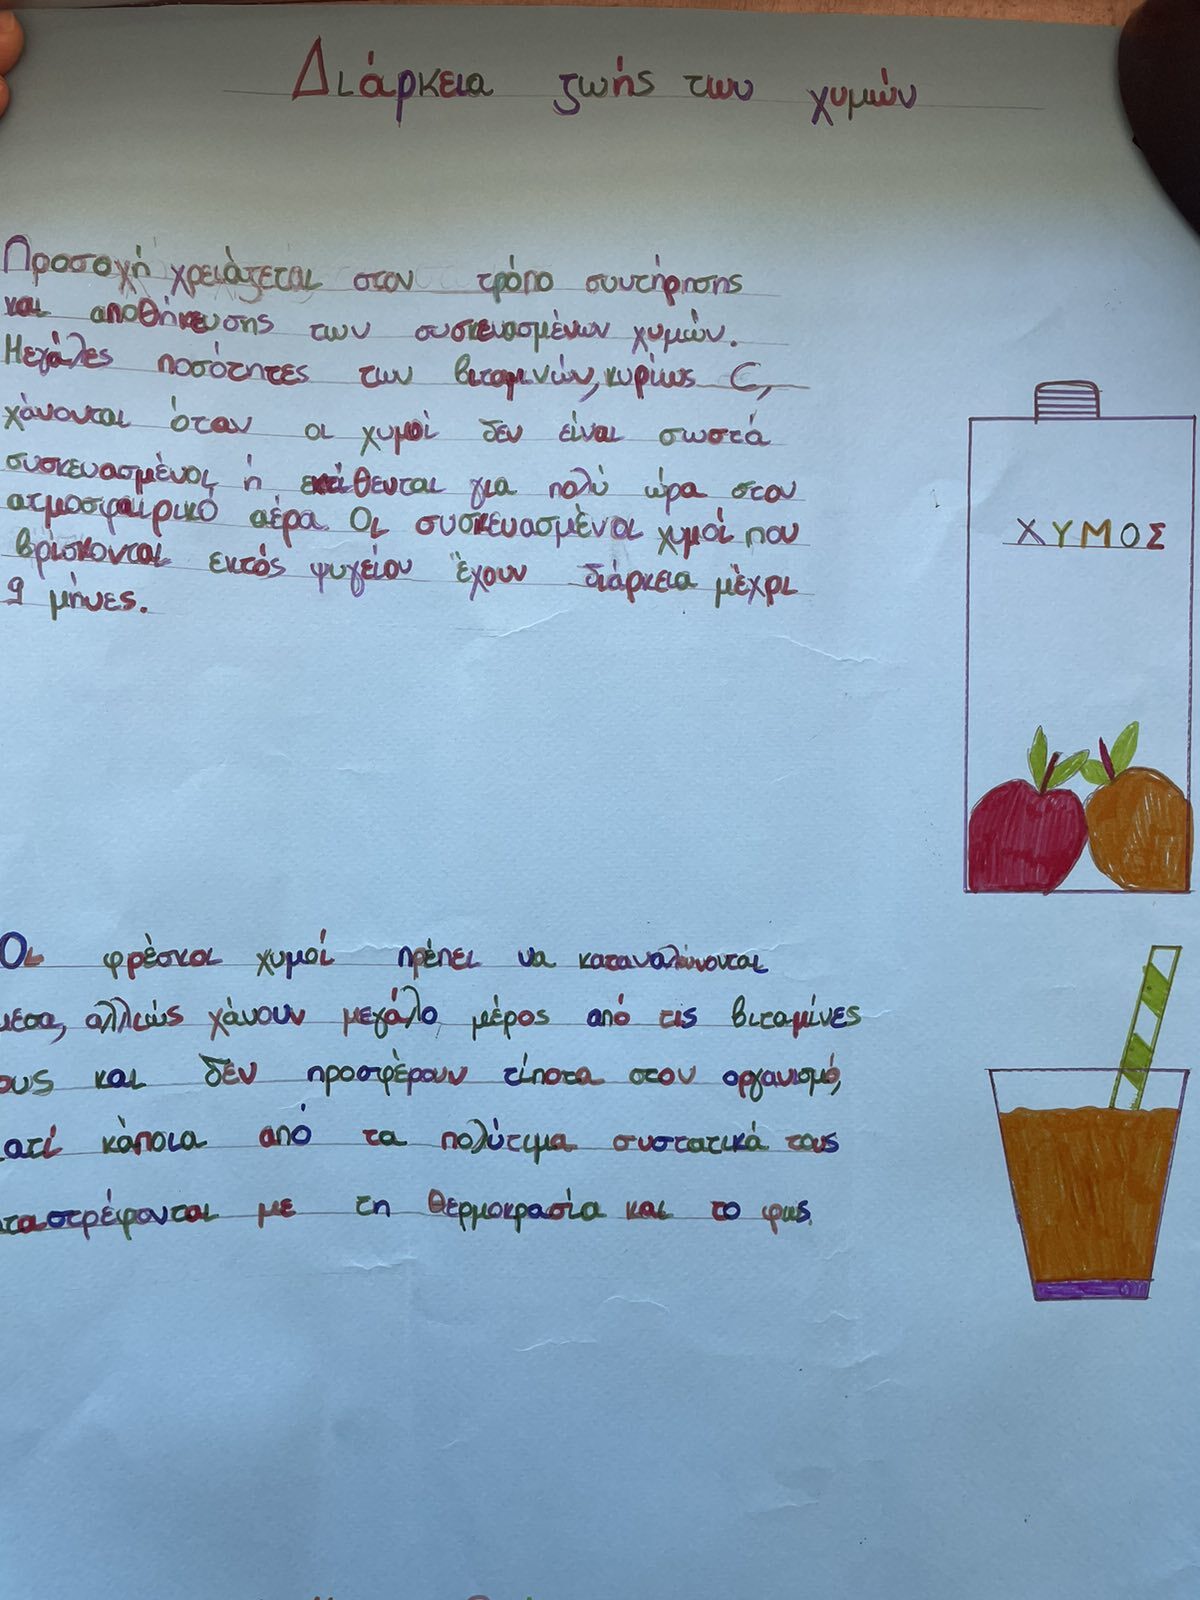 Διάρκεια ζωής των χυμών
Προσοχή χρειάζεται στον τρόπο συντήρησης
και αποθήκευσης των συσκευασμένων χυμών.
Μεγάλες ποσότητες των βιταμινών, κυρίως C,
χάνονται όταν οι χυμοί δεν είναι σωστά
συσκευασμένοι ή εκτίθενται για πολύ ώρα στον
ατμοσφαιρικό αέρα. Οι συσκευασμένοι χυμοί που
βρίσκονται εκτός ψυγείου έχουν διάρκεια μέχρι
9 μήνες.
ΧΥΜΟΣ
Οι φρέσκοι χυμοί πρέπει να καταναλώνονται
μεσα, αλλιώς χάνουν μεγάλο μέρος από τις βιταμίνες
ους και δεν προσφέρουν τίποτα στον οργανισμό,
ατί κάποια από τα πολύτιμα συστατικά τους
ταστρέφονται με τη θερμοκρασία και το φως.